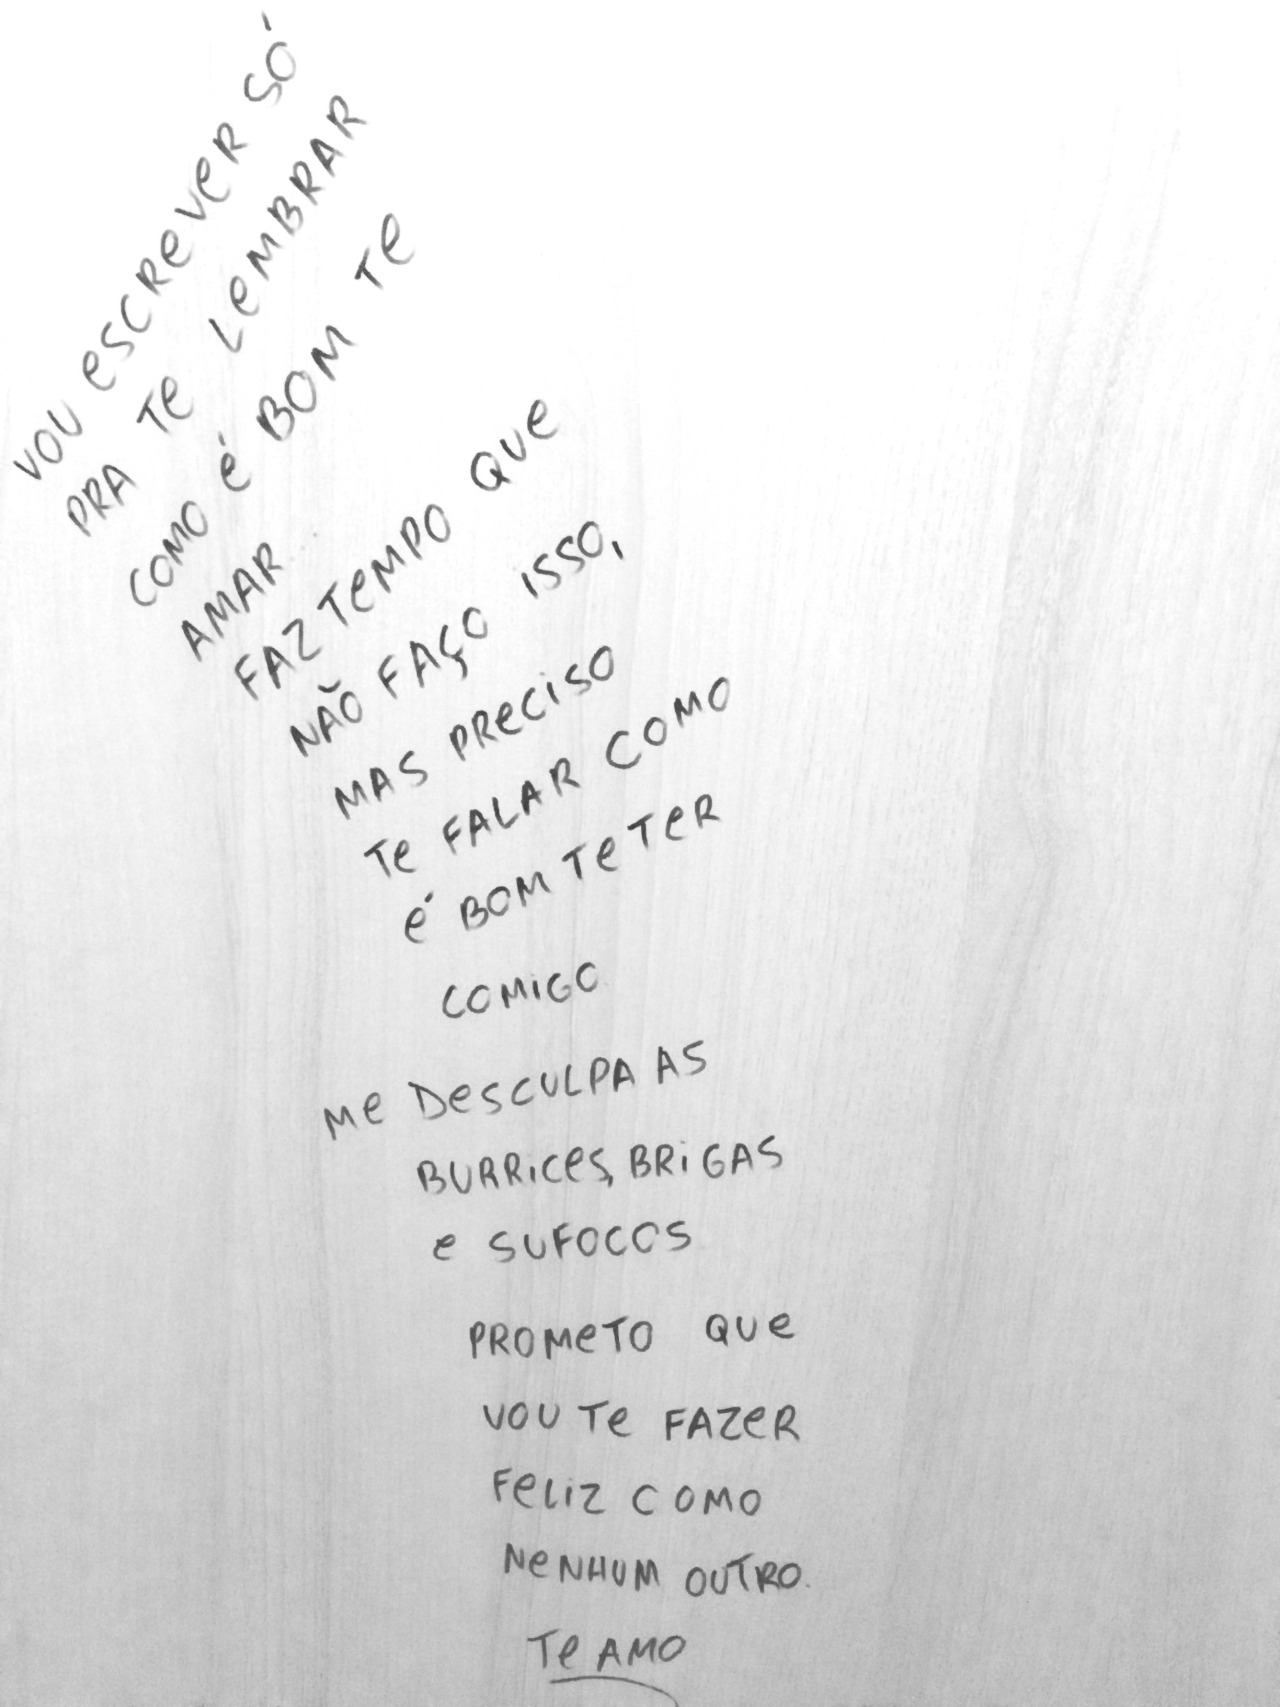 VOU ESCREVER SÓ
PRA TE LEMBRAR
COMO É BOM TE
AMAR
FAZ TEMPO QUE
NÃO FAÇO ISSO,
MAS PRECISO
TE FALAR COMO
É BOM TE TER
COMIGO
ME DESCULPA AS
BURRICES, BRIGAS
E SUFOCOS
PROMETO QUE
VOU TE FAZER
FELIZ COMO
NENHUM OUTRO.
TE AMO